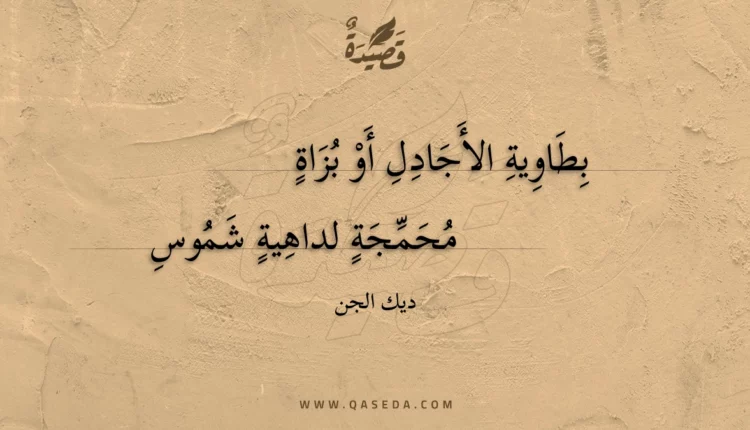 قَصِيدَةٌ
بِطَاوِيةِ الأَجَادِلِ أَوْ بُزَاةٍ
مُحَمِّجَةٍ لداهِيةٍ شَمُوسِ
ديك الجن
WWW.QASEDA.COM